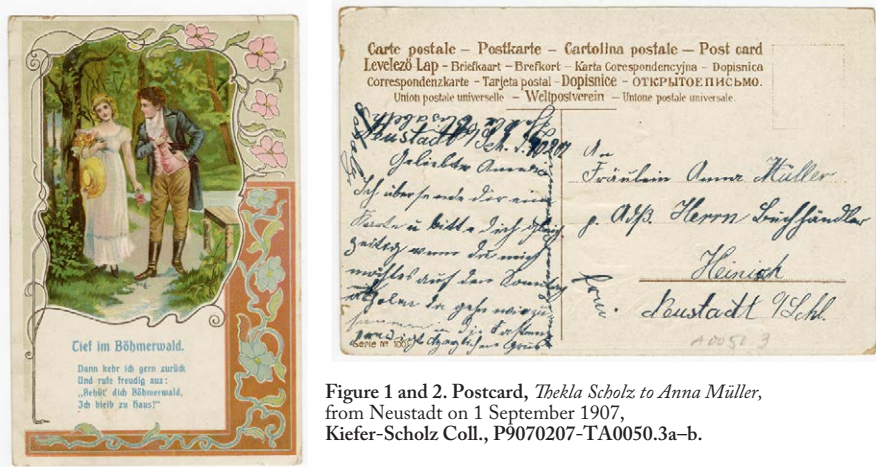 Tief im Böhmerwald.
Dann kehr ich gern zurück
Und rufe freudig aus:
„Behüt' dich Böhmerwald,
Ich bleib zu Haus!"
Carte postale – Postkarte – Cartolina postale – Post card
Levelező Lap – Briefkaart – Brefkort – Karta Corespondencyjna – Dopisnica
Correspondenzkarte – Tarjeta postal – Dopisnice – ОТКРЫТОЕ ПИСЬМО.
Union postale universelle – Weltpostverein – Unione postale universale.
Neustadt
Geliebte Anna!
Ich übersende dir eine
Karte u bitte dich gleich
zeitig wenn du mich
möchtes auf den Sonntag
abholen da gehn wir zu
sammen in die Fasten
predigt Herzlichen Gruß
Scholz
Serie № 100
An
Fräulein Anna Müller
p. Adß. Herrn Buchhändler
Heinisch
Neustadt O/Schl.
A0050.3
Figure 1 and 2. Postcard, Thekla Scholz to Anna Müller,
from Neustadt on 1 September 1907,
Kiefer-Scholz Coll., P9070207-TA0050.3a–b.